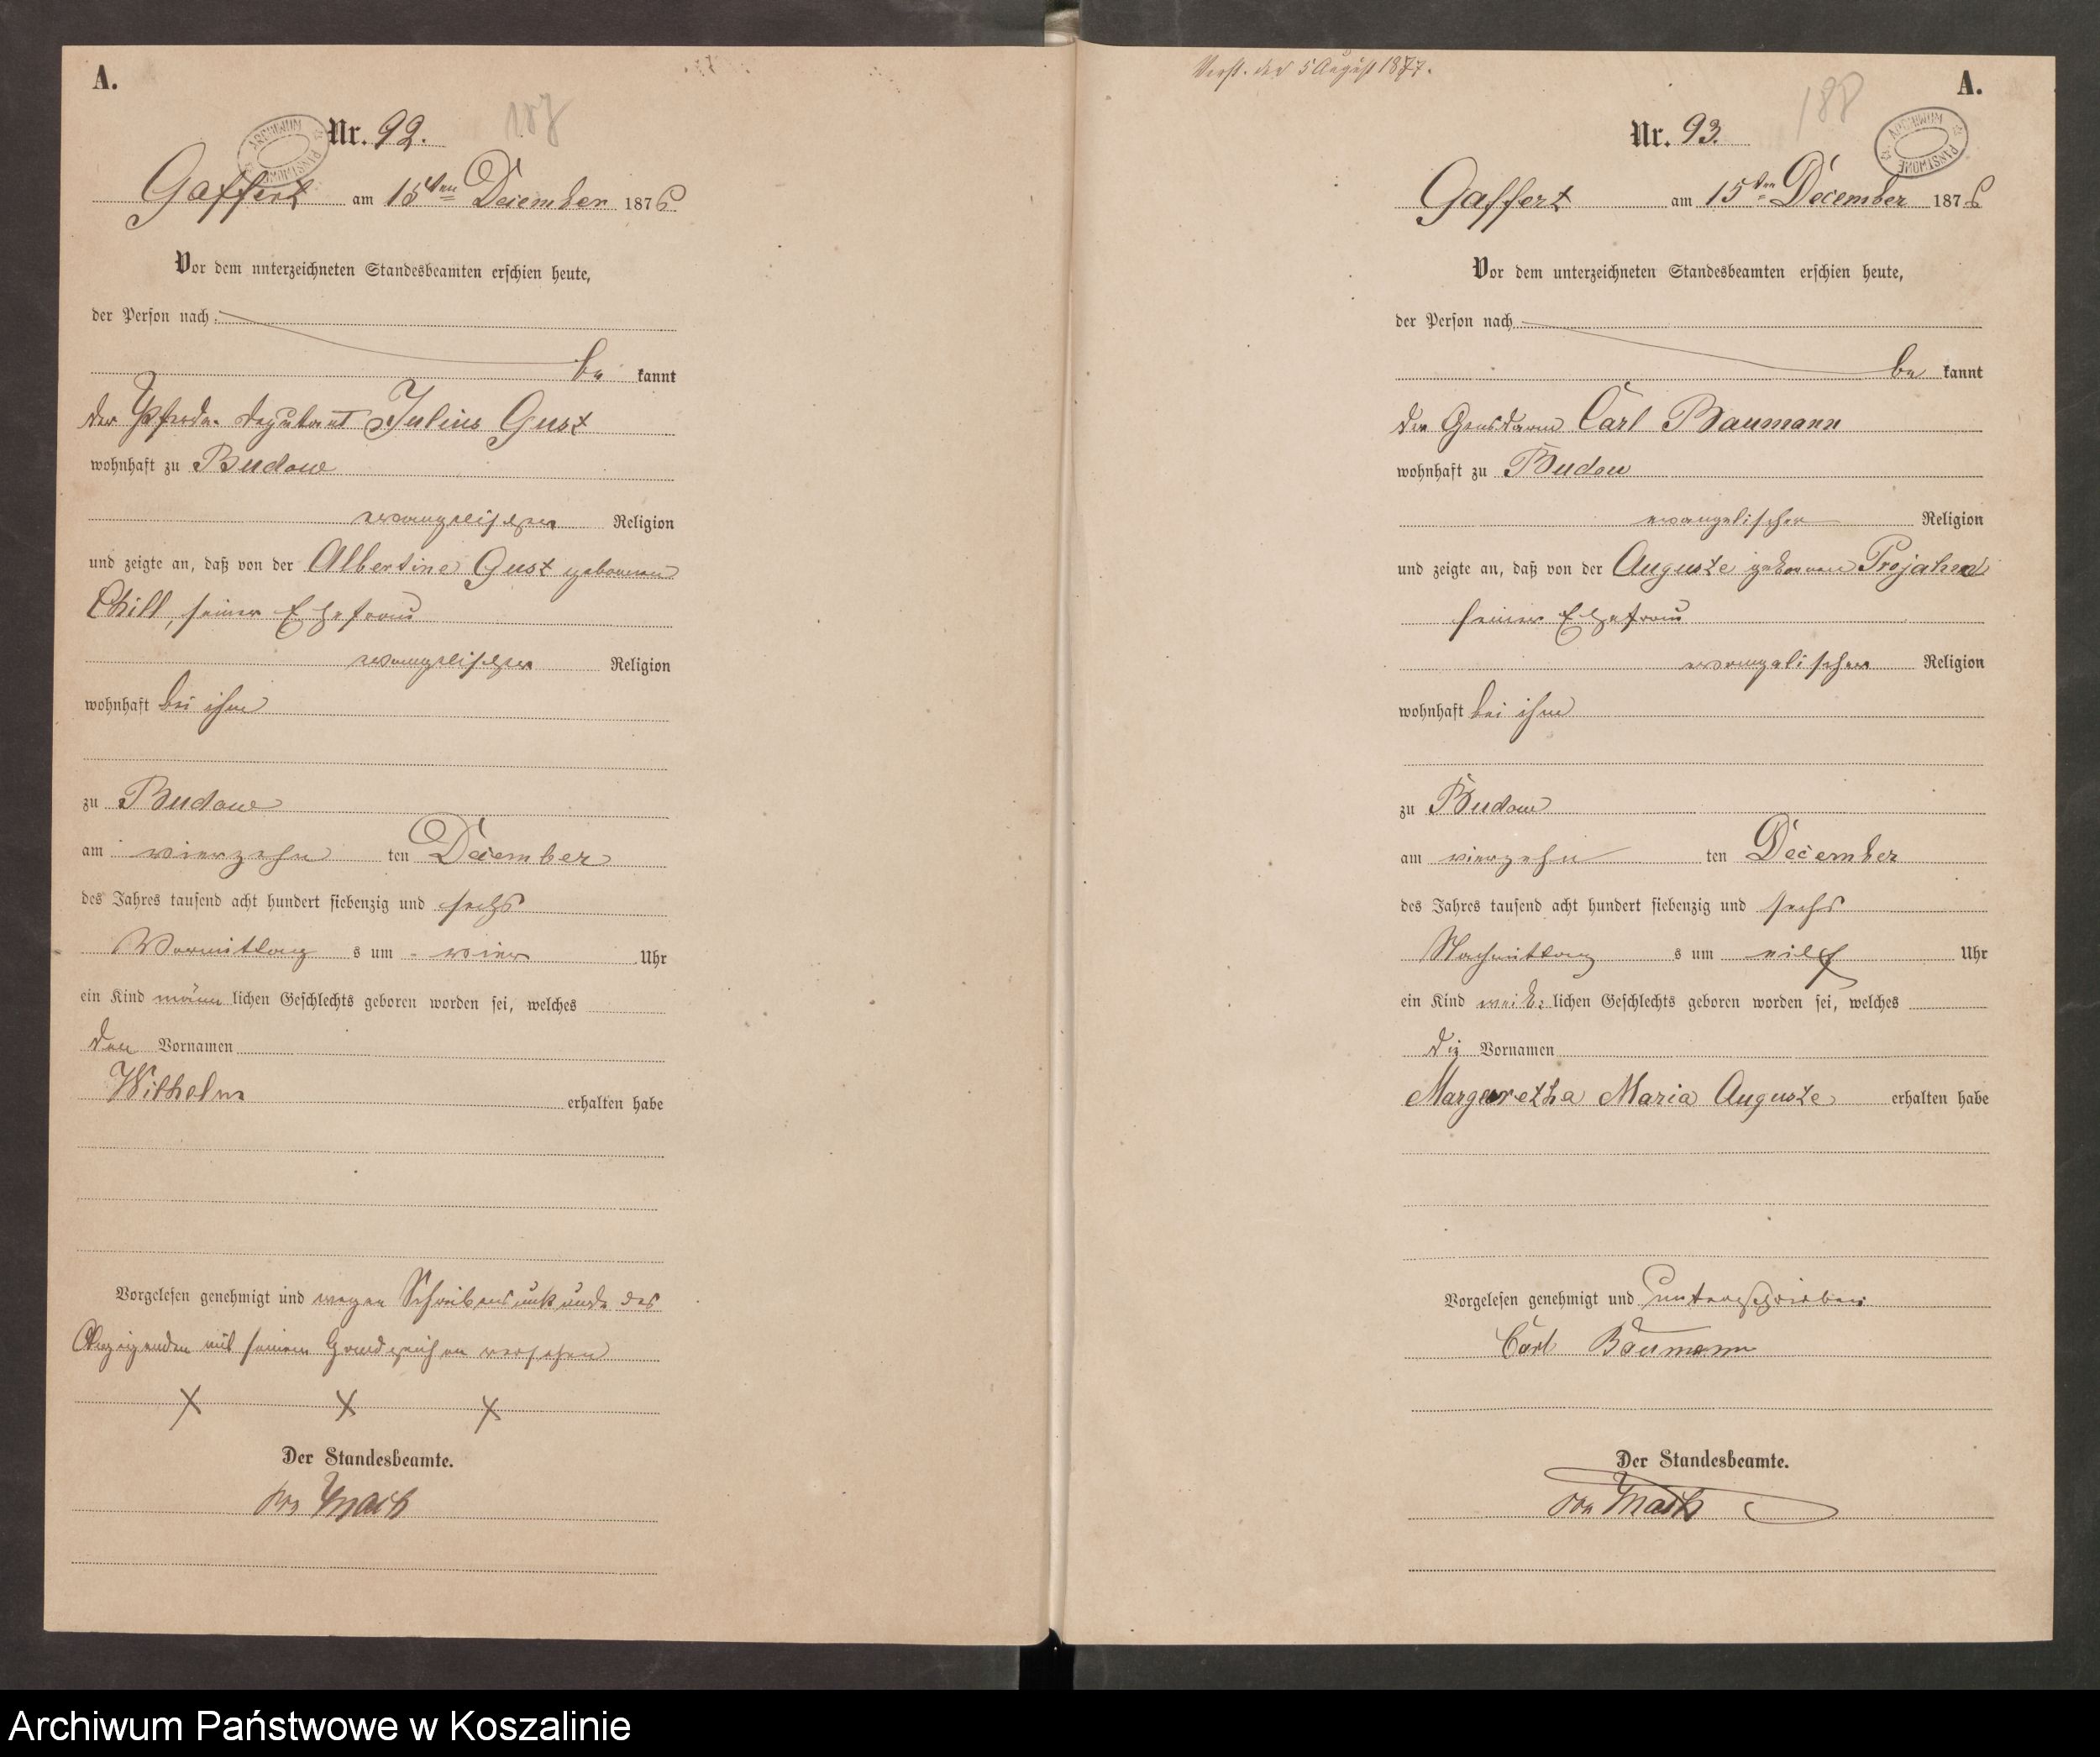 A.
187
Nr. 92.
ARCHIWUM PAŃSTWOWE
Gaffert am 15ten December 1876
Vor dem unterzeichneten Standesbeamten erschien heute,
der Person nach
be kannt
der Pferde-deputant Julius Gust
wohnhaft zu Budow
evangelischer Religion
und zeigte an, daß von der Albertine Gust geborenen
Thill, seiner Ehefrau
evangelischer Religion
wohnhaft bei ihm
zu Budow
am vierzehn ten December
des Jahres tausend acht hundert siebenzig und sechs
Vormittag s um vier Uhr
ein Kind männ lichen Geschlechts geboren worden sei, welches
den Vornamen
Wilhelm erhalten habe
Vorgelesen genehmigt und wegen Schreibensunkunde des
Anzeigenden mit seinem Handzeichen versehen
X X X
Der Standesbeamte.
von
Verst. den 5 August 1877.
A.
188
Nr. 93.
ARCHIWUM PAŃSTWOWE
Gaffert am 15ten December 1876
Vor dem unterzeichneten Standesbeamten erschien heute,
der Person nach
be kannt
der Gensdarm Carl Baumann
wohnhaft zu Budow
evangelischer Religion
und zeigte an, daß von der Auguste geborenen Projahn
seiner Ehefrau
evangelischer Religion
wohnhaft bei ihm
zu Budow
am vierzehn ten December
des Jahres tausend acht hundert siebenzig und sechs
Nachmittag s um eilf Uhr
ein Kind weib- lichen Geschlechts geboren worden sei, welches
die Vornamen
Margaretha Maria Auguste erhalten habe
Vorgelesen genehmigt und unterschrieben
Carl Baumann
Der Standesbeamte.
von
Archiwum Państwowe w Koszalinie